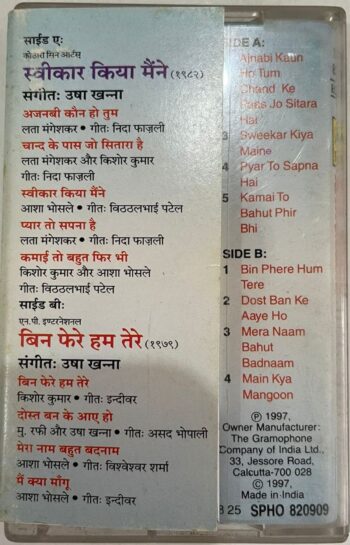 साईड ए:
कोठारी सिने आर्टस्
स्वीकार किया मैंने (१९८२)
संगीत: उषा खन्ना
अजनबी कौन हो तुम
लता मंगेशकर • गीत: निदा फाज़ली
चान्द के पास जो सितारा है
लता मंगेशकर और किशोर कुमार
गीत: निदा फाज़ली
स्वीकार किया मैंने
आशा भोसले • गीत: विठ्ठलभाई पटेल
प्यार तो सपना है
लता मंगेशकर • गीत: निदा फाज़ली
कमाई तो बहुत फिर भी
किशोर कुमार और आशा भोसले
गीत: विठ्ठलभाई पटेल
साईड बी:
एन.पी. इण्टरनेशनल
बिन फेरे हम तेरे (१९७९)
संगीत: उषा खन्ना
बिन फेरे हम तेरे
किशोर कुमार • गीत: इन्दीवर
दोस्त बन के आए हो
मु. रफी और उषा खन्ना • गीत: असद भोपाली
मेरा नाम बहुत बदनाम
आशा भोसले • गीत: विश्वेश्वर शर्मा
मैं क्या माँगू
आशा भोसले • गीत: इन्दीवर
SIDE A:
Ajnabi Kaun
Ho Tum
Chand Ke
Paas Jo Sitara
Hai
3 Sweekar Kiya
Maine
4 Pyar To Sapna
Hai
5 Kamai To
Bahut Phir
Bhi
SIDE B:
1 Bin Phere Hum
Tere
2 Dost Ban Ke
Aaye Ho
3 Mera Naam
Bahut
Badnaam
4 Main Kya
Mangoon
℗ 1997,
Owner Manufacturer:
The Gramophone
Company of India Ltd.,
33, Jessore Road,
Calcutta-700 028
© 1997,
Made in India
25 SPHO 820909